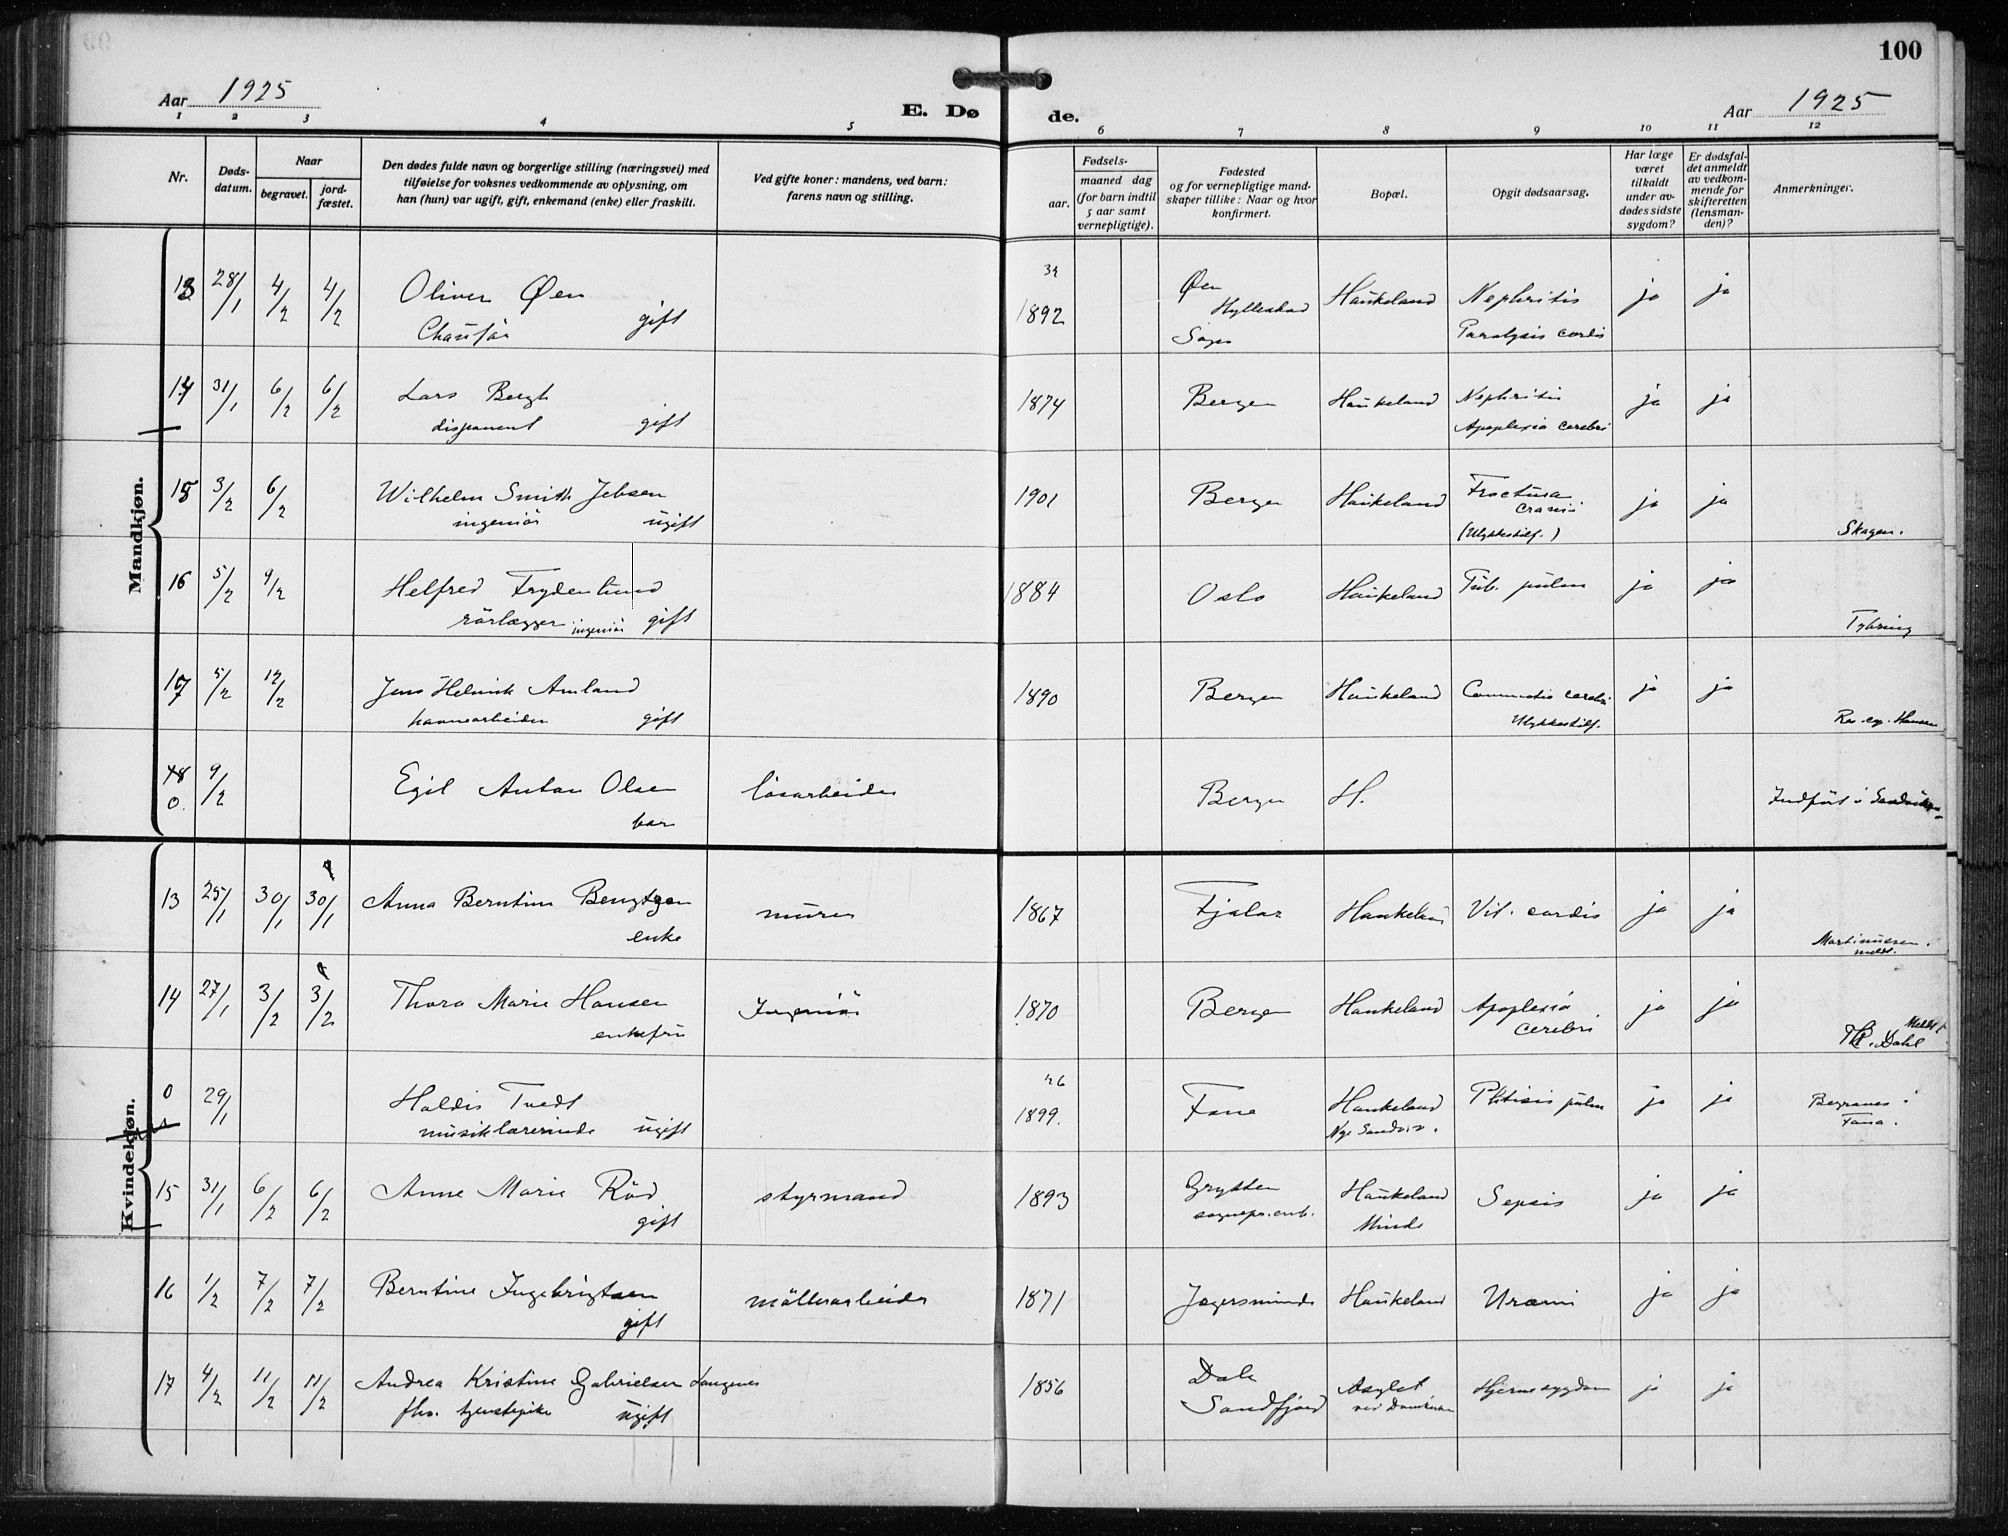 100
Aar 1925
E. Dø de.
Aar 1925
1 2 3 4 5 6 7 8 9 10 11 12
Nr.
Døds-
datum.
Naar
begravet.
jord-
fæstet.
Den dødes fulde navn og borgerlige stilling (næringsvei) med
tilføielse for voksnes vedkommende av oplysning, om
han (hun) var ugift, gift, enkemand (enke) eller fraskilt.
Ved gifte koner: mandens, ved barn:
farens navn og stilling.
Fødsels-
aar.
maaned dag
(for barn indtil
5 aar samt
vernepligtige).
Fødested
og for vernepligtige mand-
skaper tillike: Naar og hvor
konfirmert.
Bopæl.
Opgit dødsaarsag.
Har læge
været
tilkaldt
under av-
dødes sidste
sygdom?
Er dødsfal-
det anmeldt
av vedkom-
mende for
skifteretten
(lensman-
den)?
Anmerkninger.
Mandkjøn.
13 28/1 4/2 4/2 Oliver Øen 1892 Øen Haukeland Nephritis ja ja
Chaufør gift Hyllestad Paralysis cordis
Sogn
14 31/1 6/2 6/2 Lars Bergh 1874 Bergen Haukeland Nephritis ja ja
disponent gift Apoplexia cerebri
15 3/2 6/2 Wilhelm Smith Jebsen 1901 Bergen Haukeland Fractura ja ja
ingeniør ugift cranii
(Ulykkestilf.) Skagen.
16 5/2 9/2 Helfred Frydenlund 1884 Oslo Haukeland Tub. pulm ja ja
rørlægger ingeniør gift Tybring
17 5/2 12/2 Jens Helmik Amland 1890 Bergen Haukeland Commotio cerebri ja ja
havnearbeider gift Ulykkestilf. Hansen
18 0. 9/2 Egil Anton Olsen løsarbeider Bergen H. Indført i Sandviken
barn
Kvindekjøn.
13 25/1 30/1 30/1 Anna Berntine Bengtsen murer 1867 Fjaler Haukeland Vit. cordis ja ja
enke Martinussen.
meldt.
14 27/1 3/2 3/2 Thora Marie Hansen Ingeniør 1870 Bergen Haukeland Apoplexia ja ja
enkefru cerebri Meldt
Dahl
0 29/1 Haldis Tvedt 1899. Fane Haukeland Phtisis pulm ja ja Begraves i
musiklærerinde ugift Nye Sandviv. Fana.
15 31/1 6/2 6/2 Anne Marie Röd styrmand 1893 Grytten Haukeland Sepsis ja ja
gift Minde
16 1/2 7/2 7/2 Berntine Ingebrigtsen møllerarbeider 1871 Jægersminde Haukeland Uræmi ja ja
gift
17 4/2 11/2 11/2 Andrea Kristine Gabrielsen Langenes 1856 Dale Asylet Hjernesygdom ja ja
fhv. tjenestepike ugift Sandfjord ved Domkirken